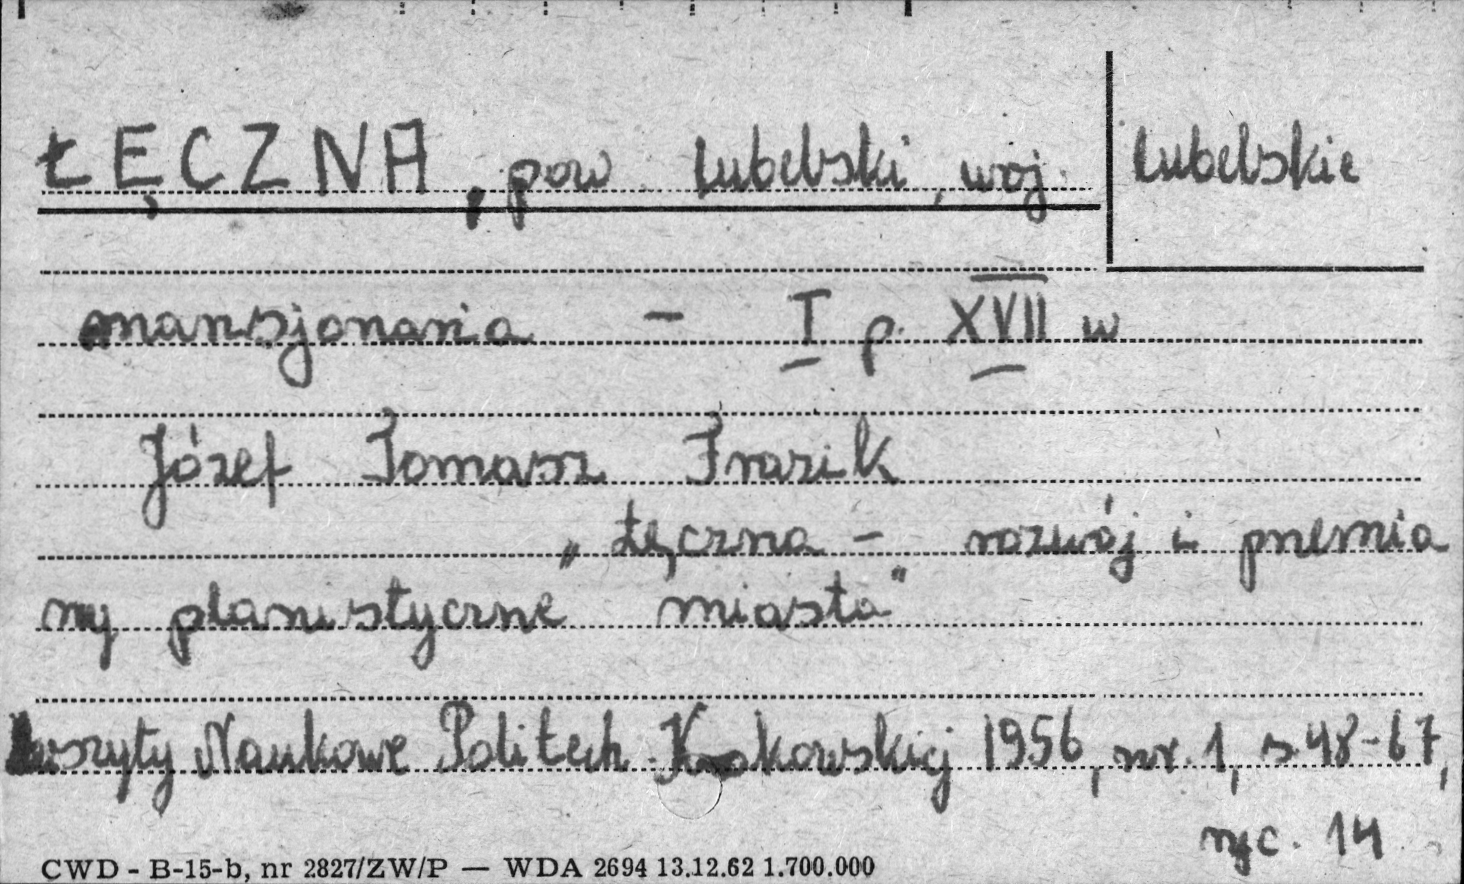 ŁĘCZNA, pow. lubelski, woj. lubelskie
mansjonaria - I p. XVII w
Józef Tomasz Frazik
„Łęczna - rozwój i przemia
ny planistyczne miasta"
Naukowe Politech. Krakowskiej 1956, nr. 1, s. 48-67,
ryc. 14
CWD - B-15-b, nr 2827/ZW/P — WDA 2694 13.12.62 1.700.000